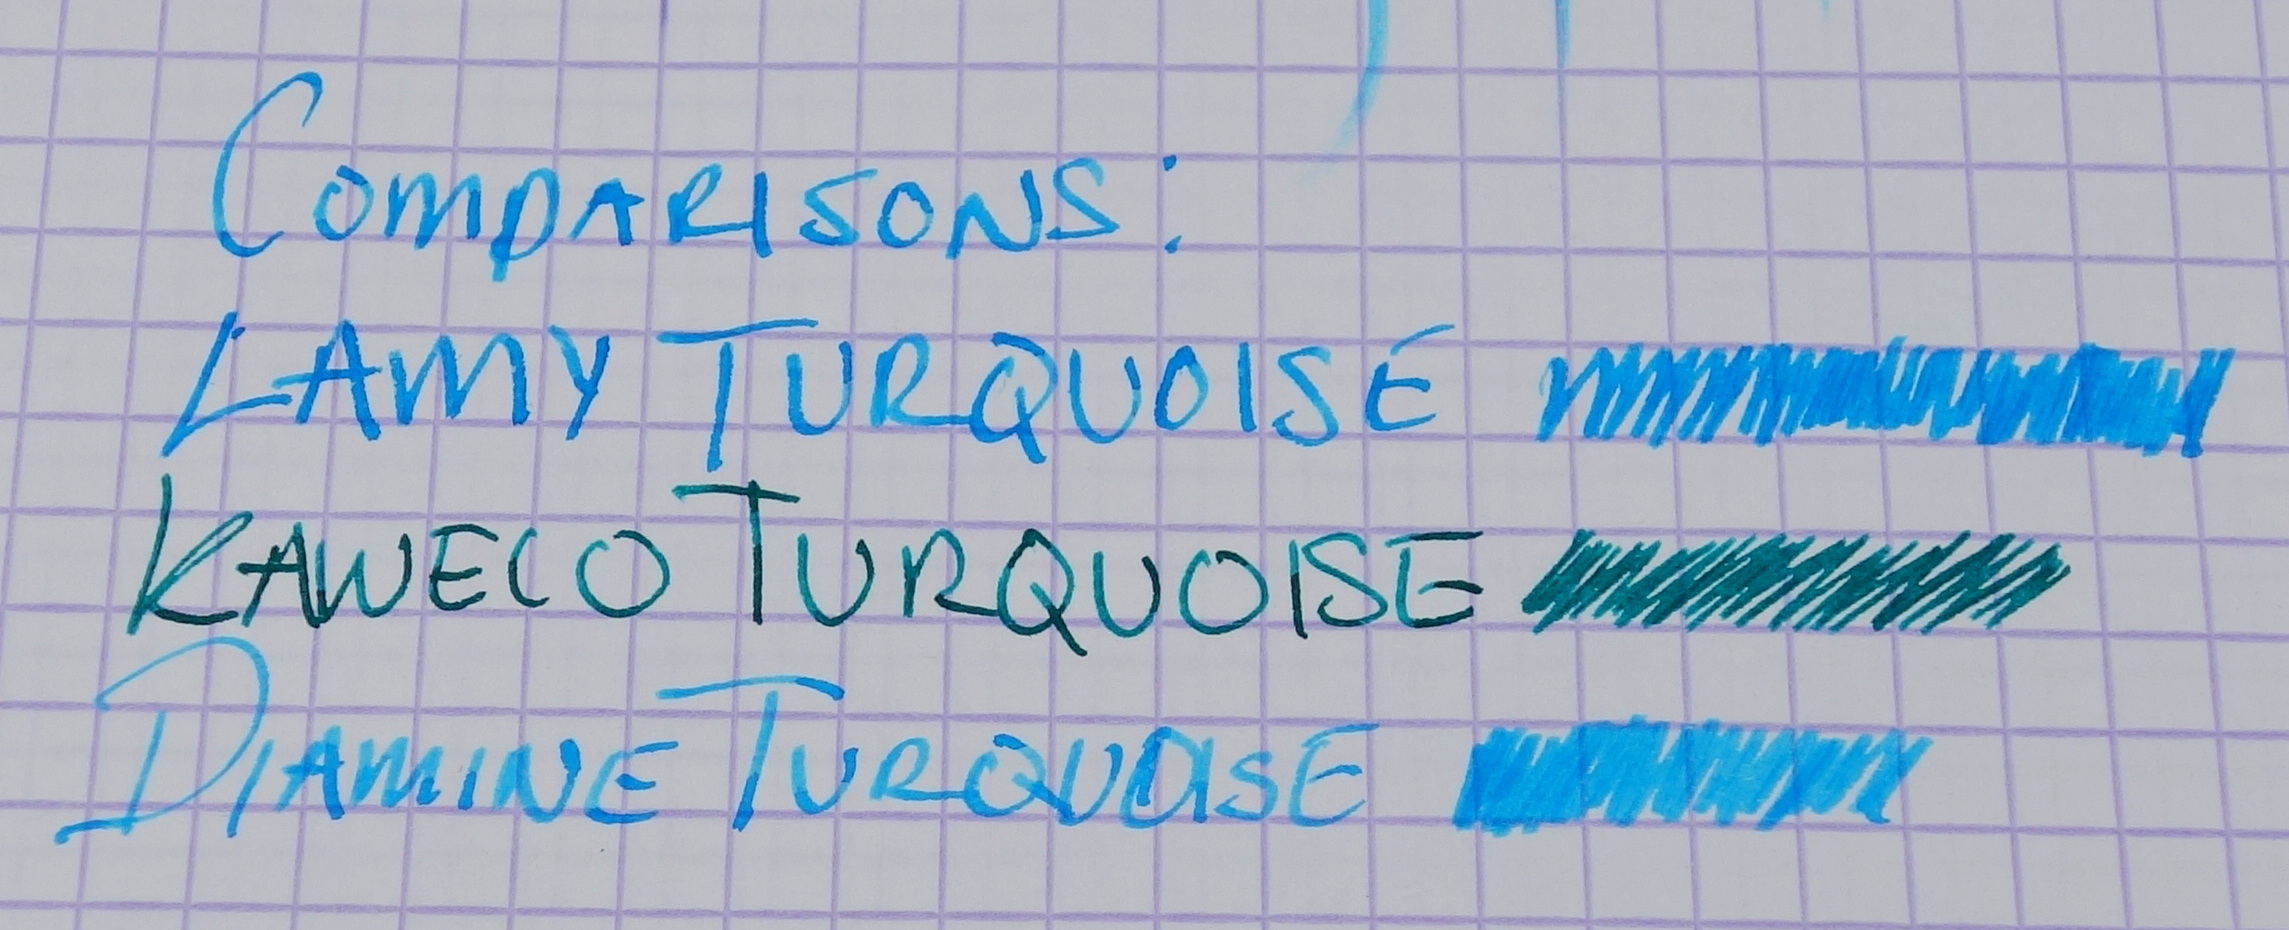 Comparisons:
Lamy Turquoise
Kaweco Turquoise
Diamine Turquoise